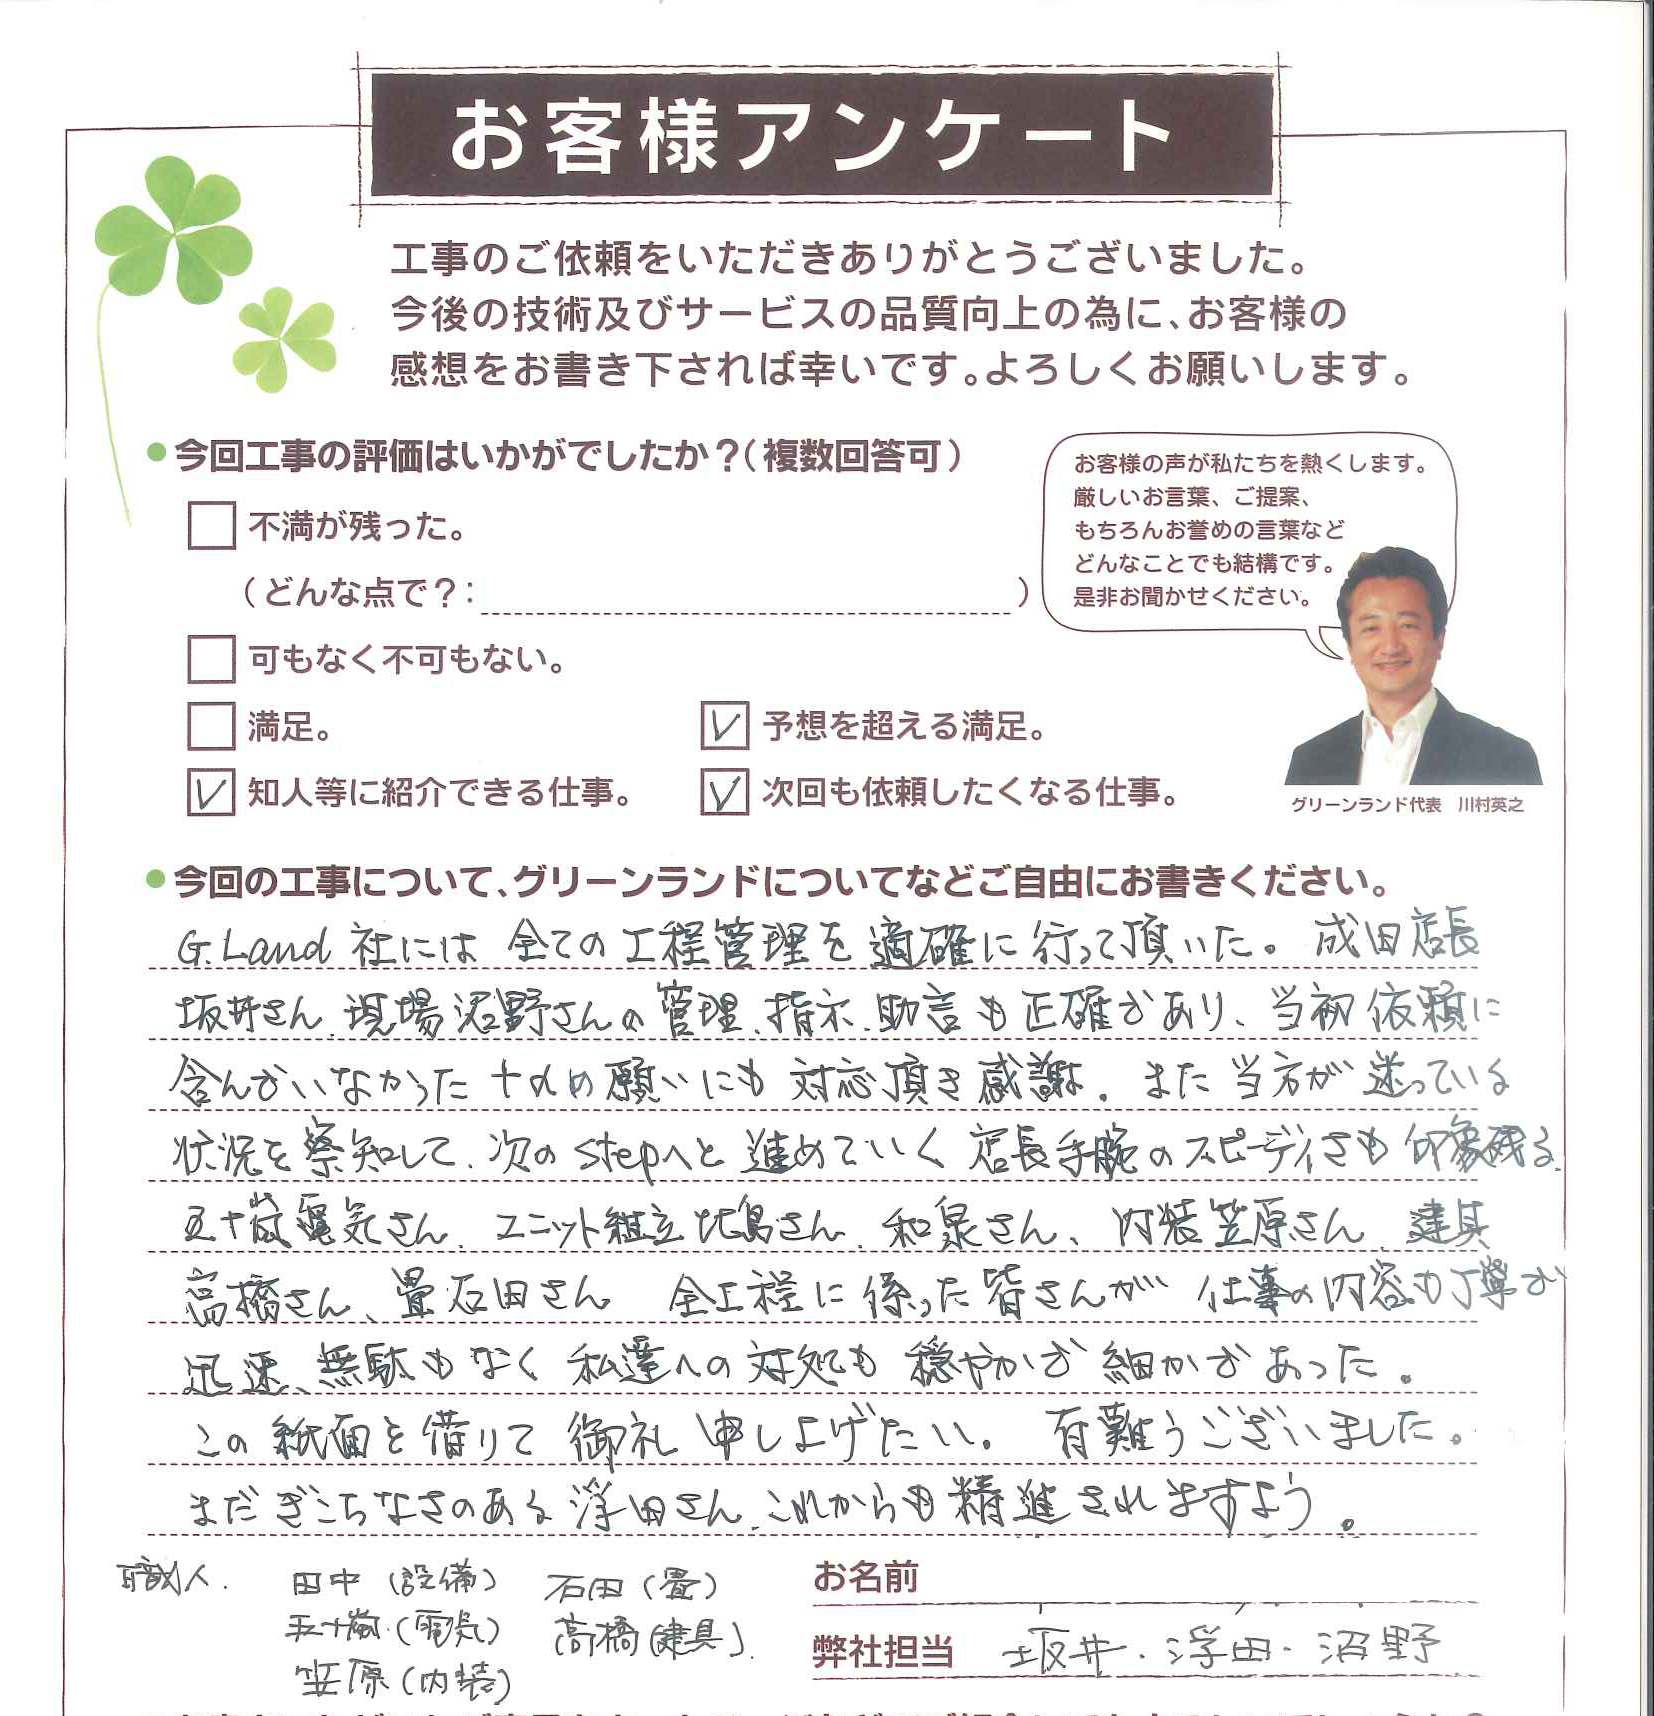 お客様アンケート
工事のご依頼をいただきありがとうございました。
今後の技術及びサービスの品質向上の為に、お客様の
感想をお書き下されば幸いです。よろしくお願いします。
●今回工事の評価はいかがでしたか？（複数回答可）
不満が残った。
（どんな点で？：　）
可もなく不可もない。
満足。
予想を超える満足。
知人等に紹介できる仕事。
次回も依頼したくなる仕事。
お客様の声が私たちを熱くします。
厳しいお言葉、ご提案、
もちろんお誉めの言葉など
どんなことでも結構です。
是非お聞かせください。
グリーンランド代表　川村英之
●今回の工事について、グリーンランドについてなどご自由にお書きください。
G.Land 社には 全ての工程管理を適確に行って頂いた。成田店長
坂井さん、現場沼野さんの管理、指示、助言も正確であり、当初依頼に
含んでいなかった 願いにも対応頂き感謝。また当方が迷っている
状況を察知して、次のstepへと進めていく店長手腕のスピーディさも印象残る。
五十嵐電気さん、ユニット組立比島さん、和泉さん、内装笠原さん、建具
高橋さん、畳石田さん 全工程に係った皆さんが 仕事の内容も丁寧で
迅速、無駄もなく私達への対処も穏やかで細かであった。
この紙面を借りて御礼申し上げたい。有難うございました。
まだぎこちなさのある浮田さん、これからも精進されますよう。
職人.
田中（設備）
石田（畳）
五十嵐（電気）
高橋（建具）
笠原（内装）
お名前
弊社担当
坂井・浮田・沼野